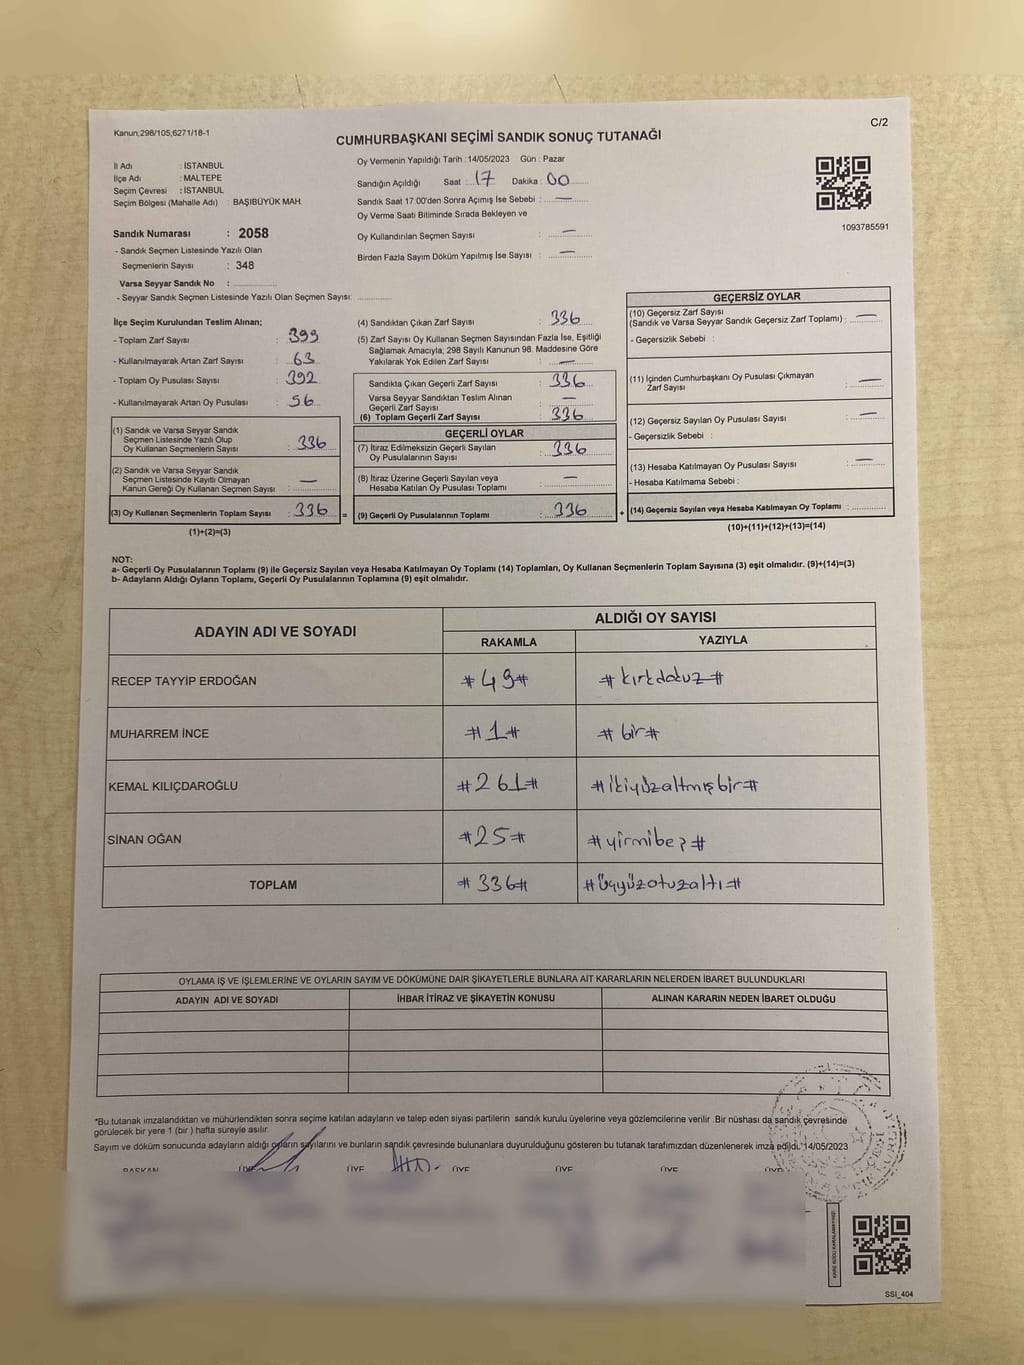 Kanun,298/105;6271/18-1
C/2
CUMHURBAŞKANI SEÇİMİ SANDIK SONUÇ TUTANAĞI
İl Adı : İSTANBUL
İlçe Adı : MALTEPE
Seçim Çevresi : İSTANBUL
Seçim Bölgesi (Mahalle Adı) : BAŞIBÜYÜK MAH.
Sandık Numarası : 2058
- Sandık Seçmen Listesinde Yazılı Olan
Seçmenlerin Sayısı : 348
Varsa Seyyar Sandık No :
- Seyyar Sandık Seçmen Listesinde Yazılı Olan Seçmen Sayısı:
Oy Vermenin Yapıldığı Tarih :14/05/2023 Gün : Pazar
Sandığın Açıldığı Saat : 17 Dakika : 00
Sandık Saat 17.00'den Sonra Açımış İse Sebebi : —
Oy Verme Saati Bitiminde Sırada Bekleyen ve
Oy Kullandırılan Seçmen Sayısı : —
Birden Fazla Sayım Döküm Yapılmış İse Sayısı : —
1093785591
İlçe Seçim Kurulundan Teslim Alınan;
- Toplam Zarf Sayısı : 399
- Kullanılmayarak Artan Zarf Sayısı : 63
- Toplam Oy Pusulası Sayısı : 392
- Kullanılmayarak Artan Oy Pusulası : 56
(1) Sandık ve Varsa Seyyar Sandık
Seçmen Listesinde Yazılı Olup
Oy Kullanan Seçmenlerin Sayısı : 336
(2) Sandık ve Varsa Seyyar Sandık
Seçmen Listesinde Kayıtlı Olmayan
Kanun Gereği Oy Kullanan Seçmen Sayısı : —
(3) Oy Kullanan Seçmenlerin Toplam Sayısı : 336 =
(1)+(2)=(3)
(4) Sandıktan Çıkan Zarf Sayısı : 336
(5) Zarf Sayısı Oy Kullanan Seçmen Sayısından Fazla İse, Eşitliği
Sağlamak Amacıyla; 298 Sayılı Kanunun 98. Maddesine Göre
Yakılarak Yok Edilen Zarf Sayısı : —
Sandıkta Çıkan Geçerli Zarf Sayısı : 336
Varsa Seyyar Sandıktan Teslim Alınan
Geçerli Zarf Sayısı : —
(6) Toplam Geçerli Zarf Sayısı : 336
GEÇERLİ OYLAR
(7) İtiraz Edilmeksizin Geçerli Sayılan
Oy Pusulalarının Sayısı : 336
(8) İtiraz Üzerine Geçerli Sayılan veya
Hesaba Katılan Oy Pusulası Toplamı : —
(9) Geçerli Oy Pusulalarının Toplamı : 336 +
GEÇERSİZ OYLAR
(10) Geçersiz Zarf Sayısı
(Sandık ve Varsa Seyyar Sandık Geçersiz Zarf Toplamı) : —
- Geçersizlik Sebebi :
(11) İçinden Cumhurbaşkanı Oy Pusulası Çıkmayan
Zarf Sayısı : —
(12) Geçersiz Sayılan Oy Pusulası Sayısı : —
- Geçersizlik Sebebi :
(13) Hesaba Katılmayan Oy Pusulası Sayısı : —
- Hesaba Katılmama Sebebi :
(14) Geçersiz Sayılan veya Hesaba Katılmayan Oy Toplamı :
(10)+(11)+(12)+(13)=(14)
NOT:
a- Geçerli Oy Pusulalarının Toplamı (9) ile Geçersiz Sayılan veya Hesaba Katılmayan Oy Toplamı (14) Toplamları, Oy Kullanan Seçmenlerin Toplam Sayısına (3) eşit olmalıdır. (9)+(14)=(3)
b- Adayların Aldığı Oyların Toplamı, Geçerli Oy Pusulalarının Toplamına (9) eşit olmalıdır.
ADAYIN ADI VE SOYADI
ALDIĞI OY SAYISI
RAKAMLA YAZIYLA
RECEP TAYYİP ERDOĞAN #49# #kırkdokuz#
MUHARREM İNCE #1# #bir#
KEMAL KILIÇDAROĞLU #261# #ikiyüzaltmışbir#
SİNAN OĞAN #25# #yirmibeş#
TOPLAM #336# #üçyüzotuzaltı#
OYLAMA İŞ VE İŞLEMLERİNE VE OYLARIN SAYIM VE DÖKÜMÜNE DAİR ŞİKAYETLERLE BUNLARA AİT KARARLARIN NELERDEN İBARET BULUNDUKLARI
ADAYIN ADI VE SOYADI İHBAR İTİRAZ VE ŞİKAYETİN KONUSU ALINAN KARARIN NEDEN İBARET OLDUĞU
*Bu tutanak imzalandıktan ve mühürlendikten sonra seçime katılan adayların ve talep eden siyasi partilerin sandık kurulu üyelerine veya gözlemcilerine verilir. Bir nüshası da sandık çevresinde
görülecek bir yere 1 (bir ) hafta süreyle asılır.
Sayım ve döküm sonucunda adayların aldığı oyların sayılarını ve bunların sandık çevresinde bulunanlara duyurulduğunu gösteren bu tutanak tarafımızdan düzenlenerek imza edildi. 14/05/2023
BAŞKAN ÜYE ÜYE ÜYE ÜYE ÜYE ÜYE
SSI_404